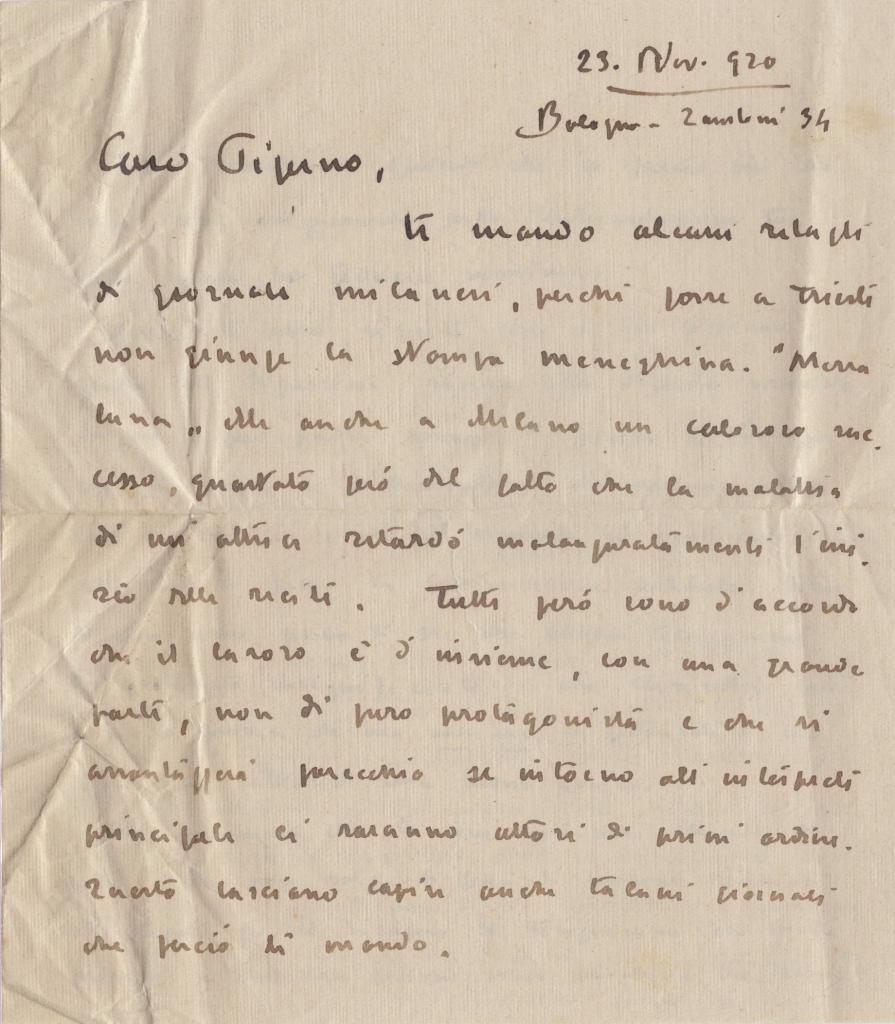 23. Nov. 920
Bologna - Zamboni 34
Caro Gigino,
ti mando alcuni ritagli
di giornali milanesi, perchè forse a Trieste
non giunge la stampa meneghina. "Mezza
luna" ebbe anche a Milano un caloroso suc-
cesso, guastato però dal fatto che la malattia
di un'attrice ritardò malauguratamente l'ini-
zio delle recite. Tutti però sono d'accordo
che il lavoro è d'insieme, con una grande
parte, non di puro protagonista e che si
avvantaggerà parecchio se intorno all'interprete
principale ci saranno attori di primi ordine.
Questo lasciano capire anche taluni giornali
che perciò ti mando.